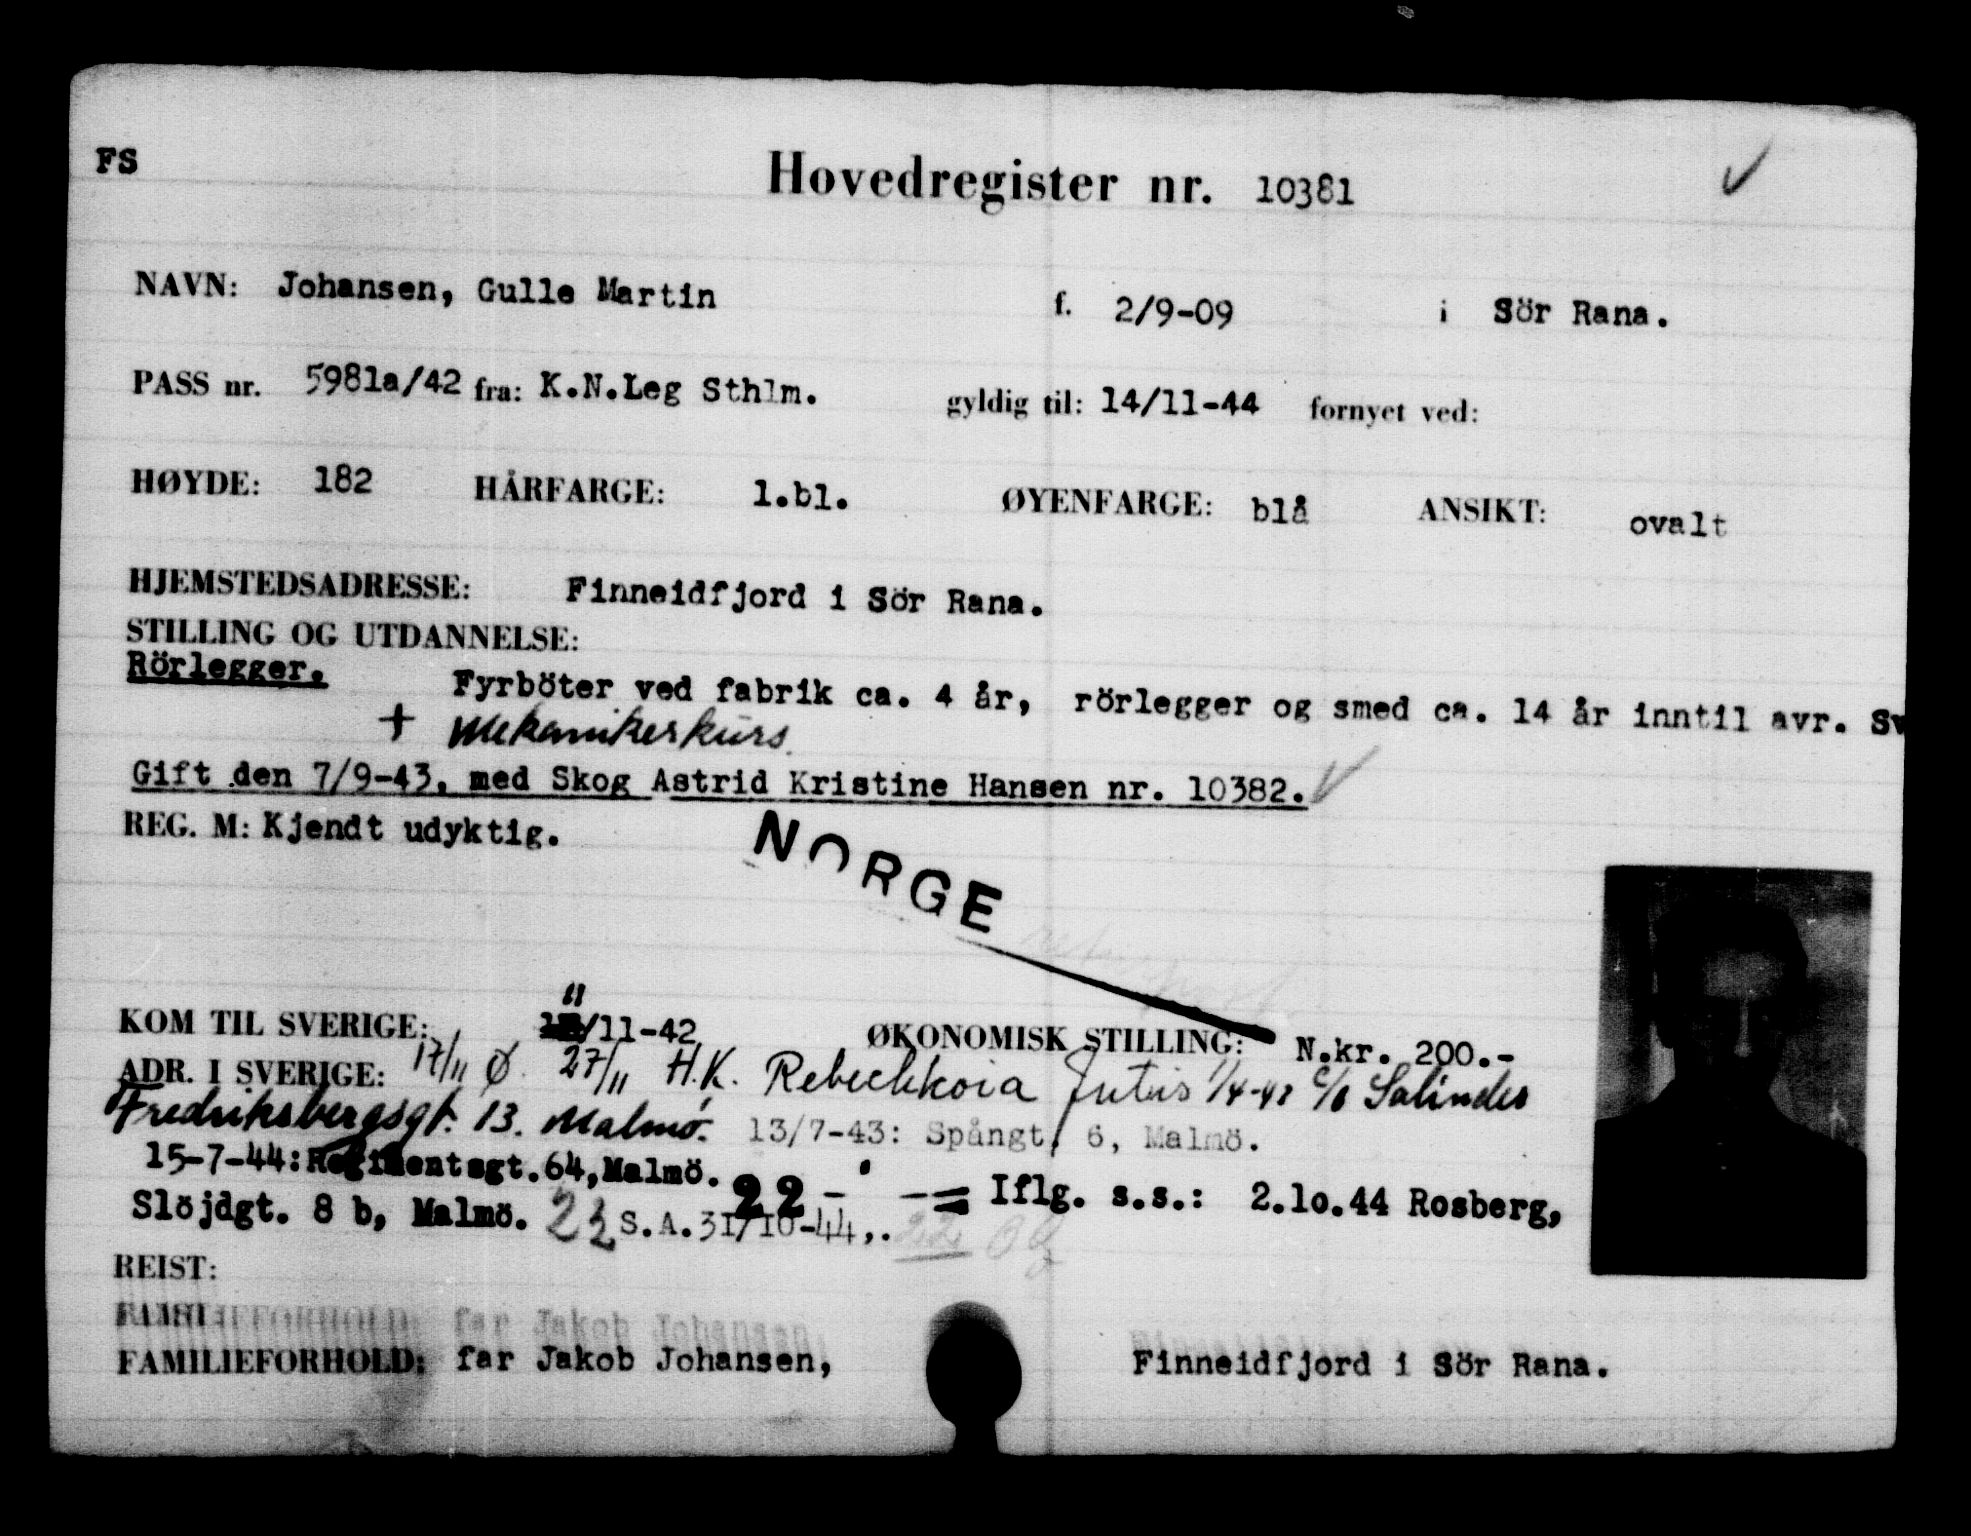 FS
Hovedregister nr. 10381
NAVN: Johansen, Gulle Martin f. 2/9-09 i Sör Rana.
PASS nr. 5981a/42 fra: K.N.Leg Sthlm. gyldig til: 14/11-44 fornyet ved:
HØYDE: 182 HÅRFARGE: l.bl. ØYENFARGE: blå ANSIKT: ovalt
HJEMSTEDSADRESSE: Finneidfjord i Sör Rana.
STILLING OG UTDANNELSE:
Rörlegger. Fyrböter ved fabrik ca. 4 år, rörlegger og smed ca. 14 år inntil avr. Sv
+ Mekanikerkurs.
Gift den 7/9-43, med Skog Astrid Kristine Hansen nr. 10382.
REG. M: Kjendt udyktig.
NORGE
KOM TIL SVERIGE: 11/11-42 ØKONOMISK STILLING: N.kr. 200.-
ADR. I SVERIGE: 17/11 Ø. 27/11 H.K. 1/4-43 c/o
Fredriksbergsgt. 13. Malmö. 13/7-43: Spångt. 6, Malmö.
15-7-44: Regimentsgt. 64, Malmö. 22 - " -= Iflg. s.s.: 2.10.44 Rosberg,
Slöjdgt. 8 b, Malmö. S.A. 31/10-44,. 22
REIST:
FAMILIEFORHOLD: far Jakob Johansen, Finneidfjord i Sör Rana.